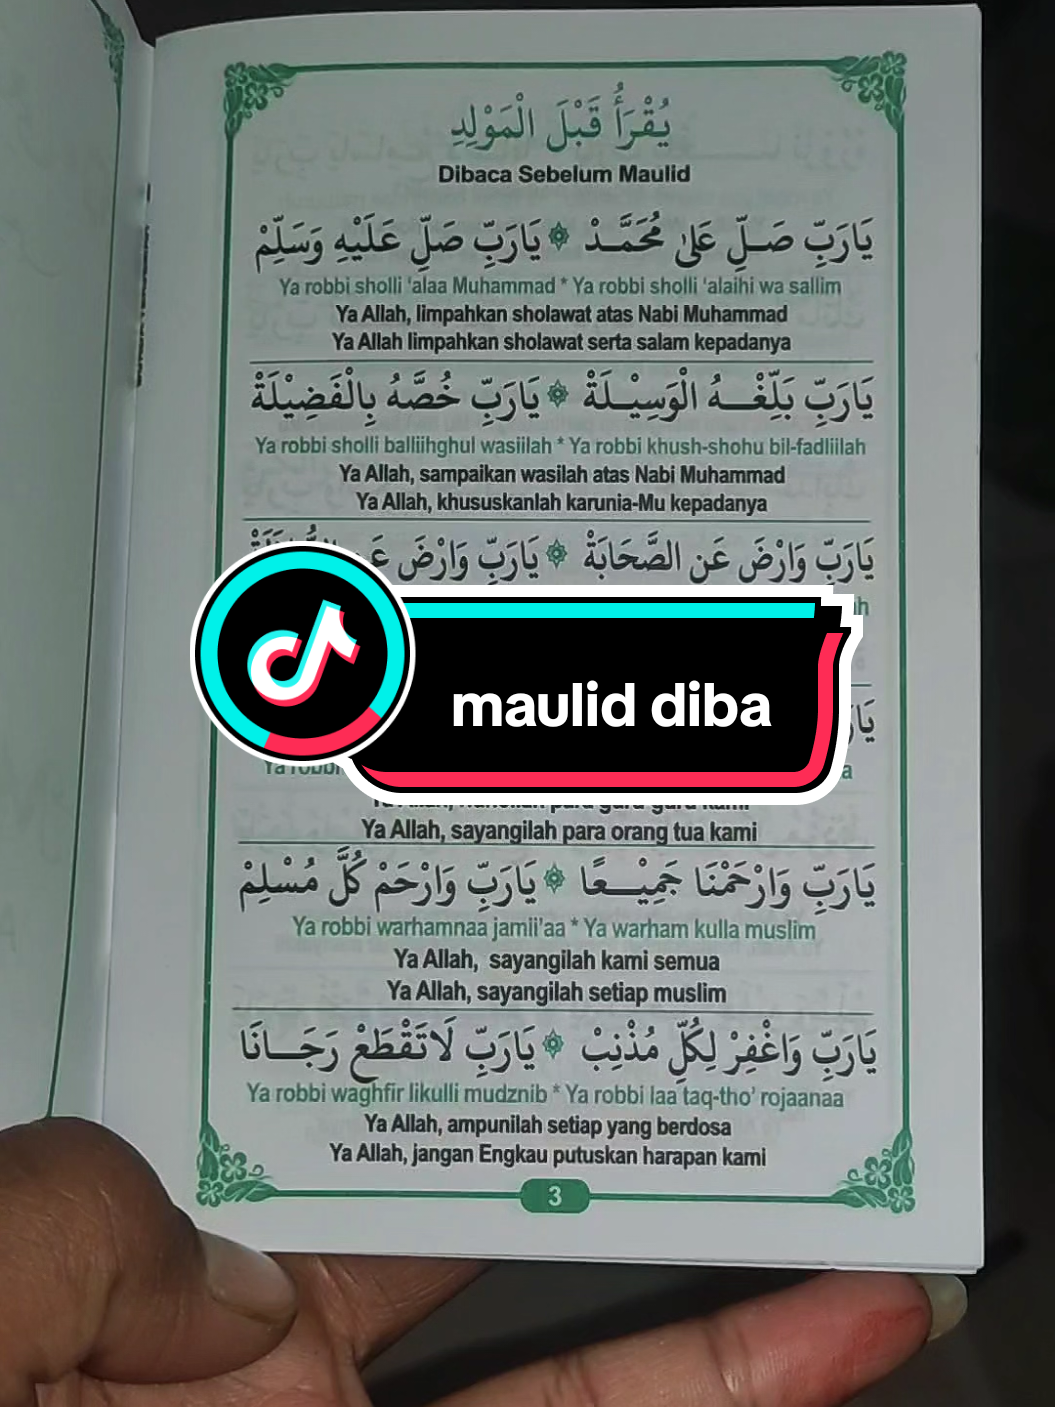 يُقْرَأُ قَبْلَ الْمَوْلِدِ
Dibaca Sebelum Maulid
يَارَبِّ صَلِّ عَلىٰ مُحَمَّدْ ۞ يَارَبِّ صَلِّ عَلَيْهِ وَسَلِّمْ
Ya robbi sholli ‘alaa Muhammad * Ya robbi sholli ‘alaihi wa sallim
Ya Allah, limpahkan sholawat atas Nabi Muhammad
Ya Allah limpahkan sholawat serta salam kepadanya
يَارَبِّ بَلِّغْهُ الْوَسِيْلَةْ ۞ يَارَبِّ خُصَّهُ بِالْفَضِيْلَةْ
Ya robbi sholli balliihghul wasiilah * Ya robbi khush-shohu bil-fadliilah
Ya Allah, sampaikan wasilah atas Nabi Muhammad
Ya Allah, khususkanlah karunia-Mu kepadanya
يَارَبِّ وَارْضَ عَنِ الصَّحَابَةْ ۞ يَارَبِّ وَارْضَ عَنِ
maulid diba
Ya robbi
Ya Allah, sayangilah para orang tua kami
يَارَبِّ وَارْحَمْنَا جَمِيْعًا ۞ يَارَبِّ وَارْحَمْ كُلَّ مُسْلِمْ
Ya robbi warhamnaa jamii’aa * Ya warham kulla muslim
Ya Allah, sayangilah kami semua
Ya Allah, sayangilah setiap muslim
يَارَبِّ وَاغْفِرْ لِكُلِّ مُذْنِبْ ۞ يَارَبِّ لَاتَقْطَعْ رَجَانَا
Ya robbi waghfir likulli mudznib * Ya robbi laa taq-tho’ rojaanaa
Ya Allah, ampunilah setiap yang berdosa
Ya Allah, jangan Engkau putuskan harapan kami
3